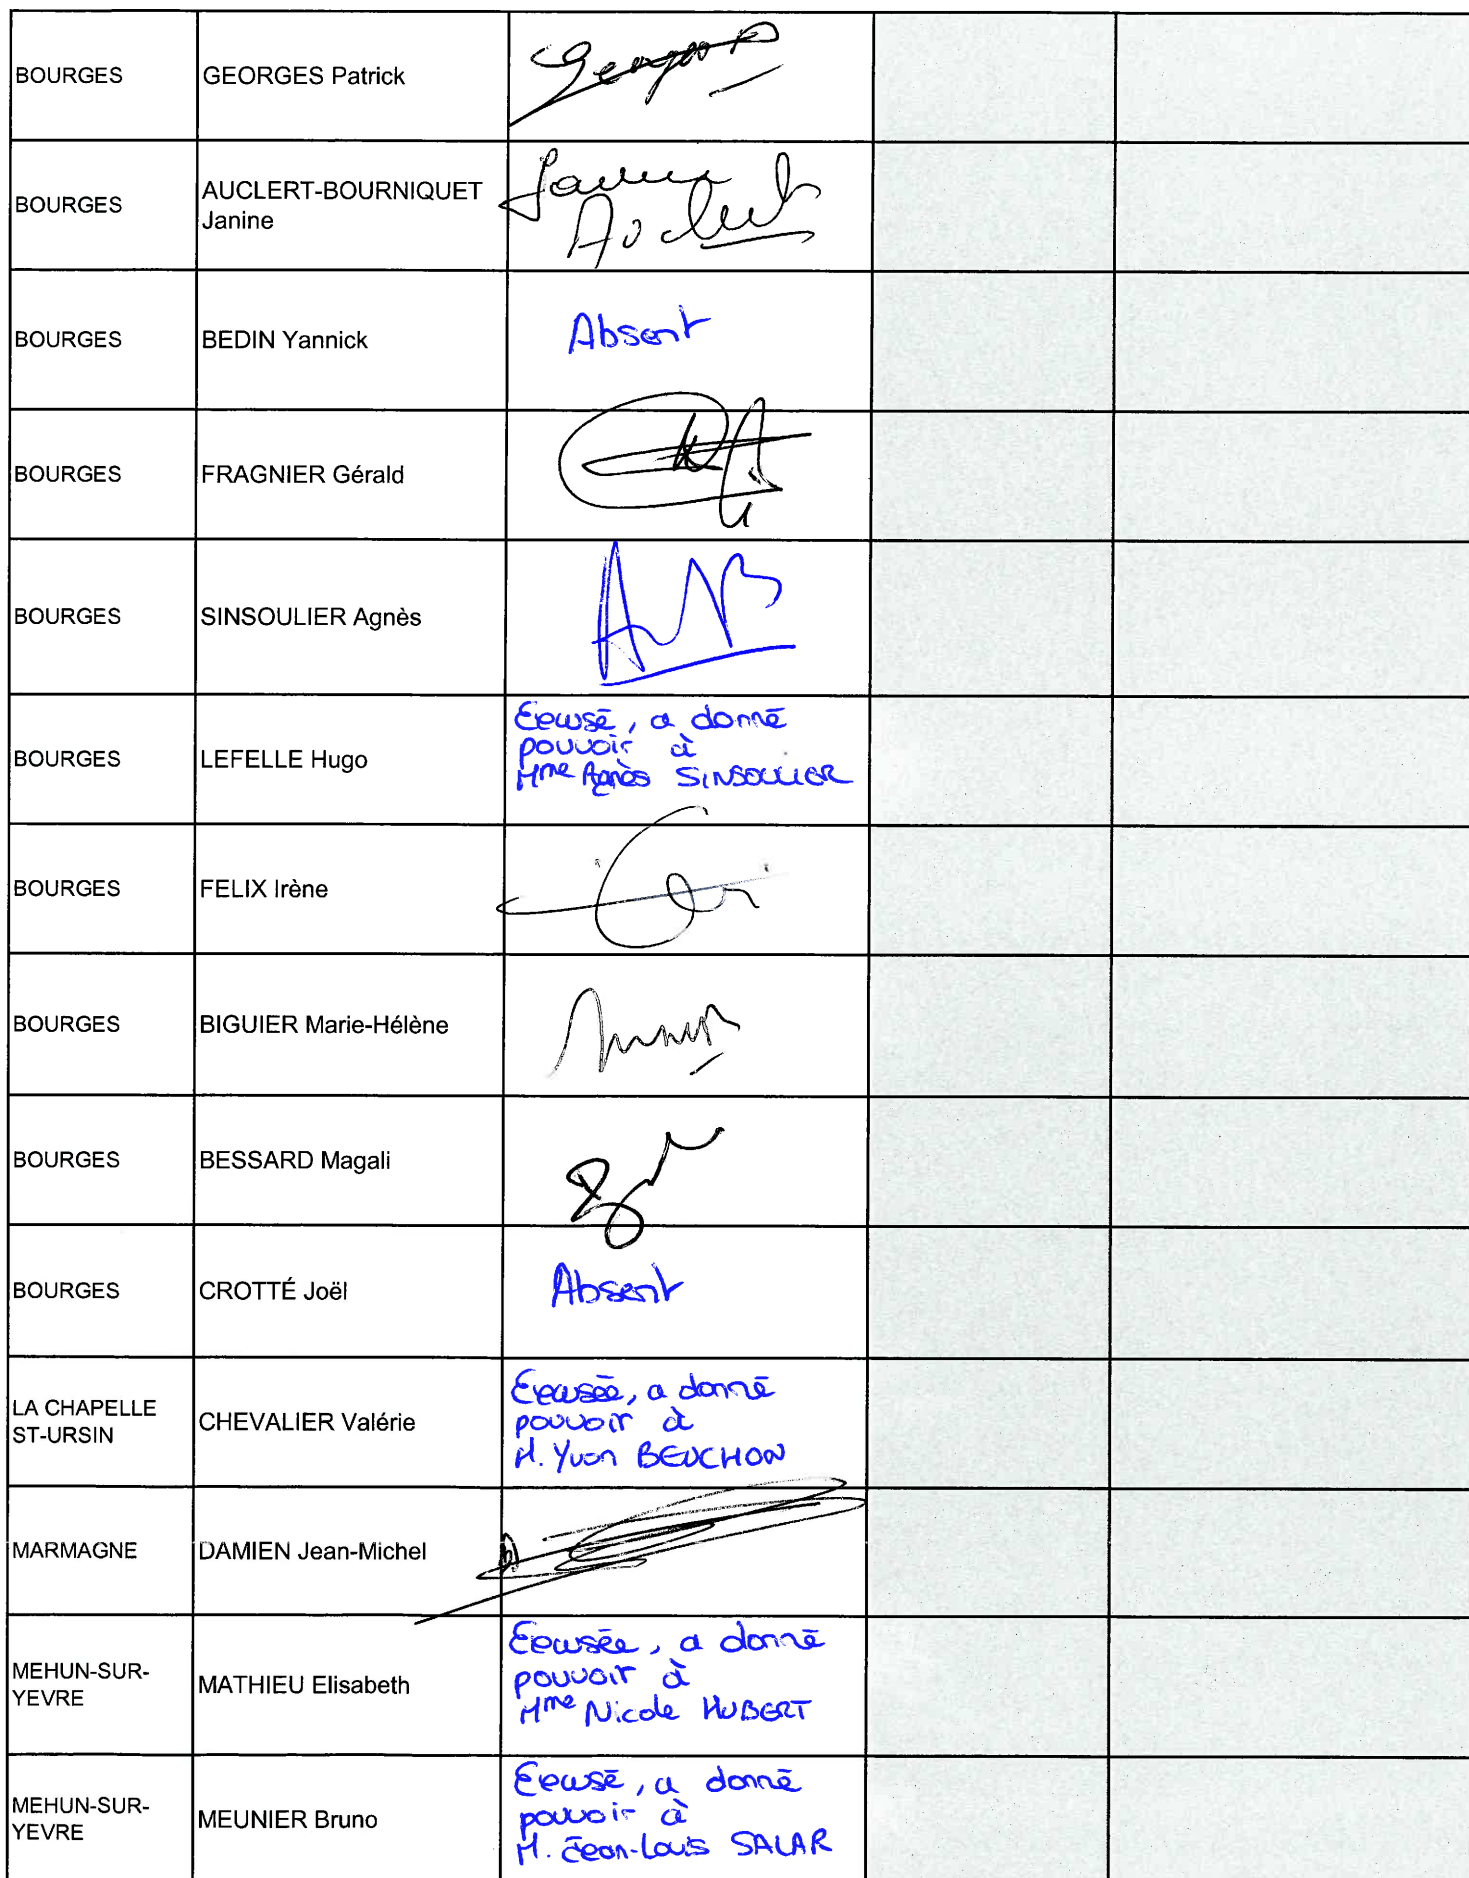 BOURGES
GEORGES Patrick
Georges P
BOURGES
AUCLERT-BOURNIQUET
Janine
Janine
Auclert
BOURGES
BEDIN Yannick
Absent
BOURGES
FRAGNIER Gérald
BOURGES
SINSOULIER Agnès
BOURGES
LEFELLE Hugo
Excusé, a donné
pouvoir à
Mme Agnès SINSOULIER
BOURGES
FELIX Irène
BOURGES
BIGUIER Marie-Hélène
BOURGES
BESSARD Magali
BOURGES
CROTTÉ Joël
Absent
LA CHAPELLE
ST-URSIN
CHEVALIER Valérie
Excusée, a donné
pouvoir à
M. Yvon BEUCHON
MARMAGNE
DAMIEN Jean-Michel
MEHUN-SUR-
YEVRE
MATHIEU Elisabeth
Excusée, a donné
pouvoir à
Mme Nicole HUBERT
MEHUN-SUR-
YEVRE
MEUNIER Bruno
Excusé, a donné
pouvoir à
M. Jean-Louis SALAK